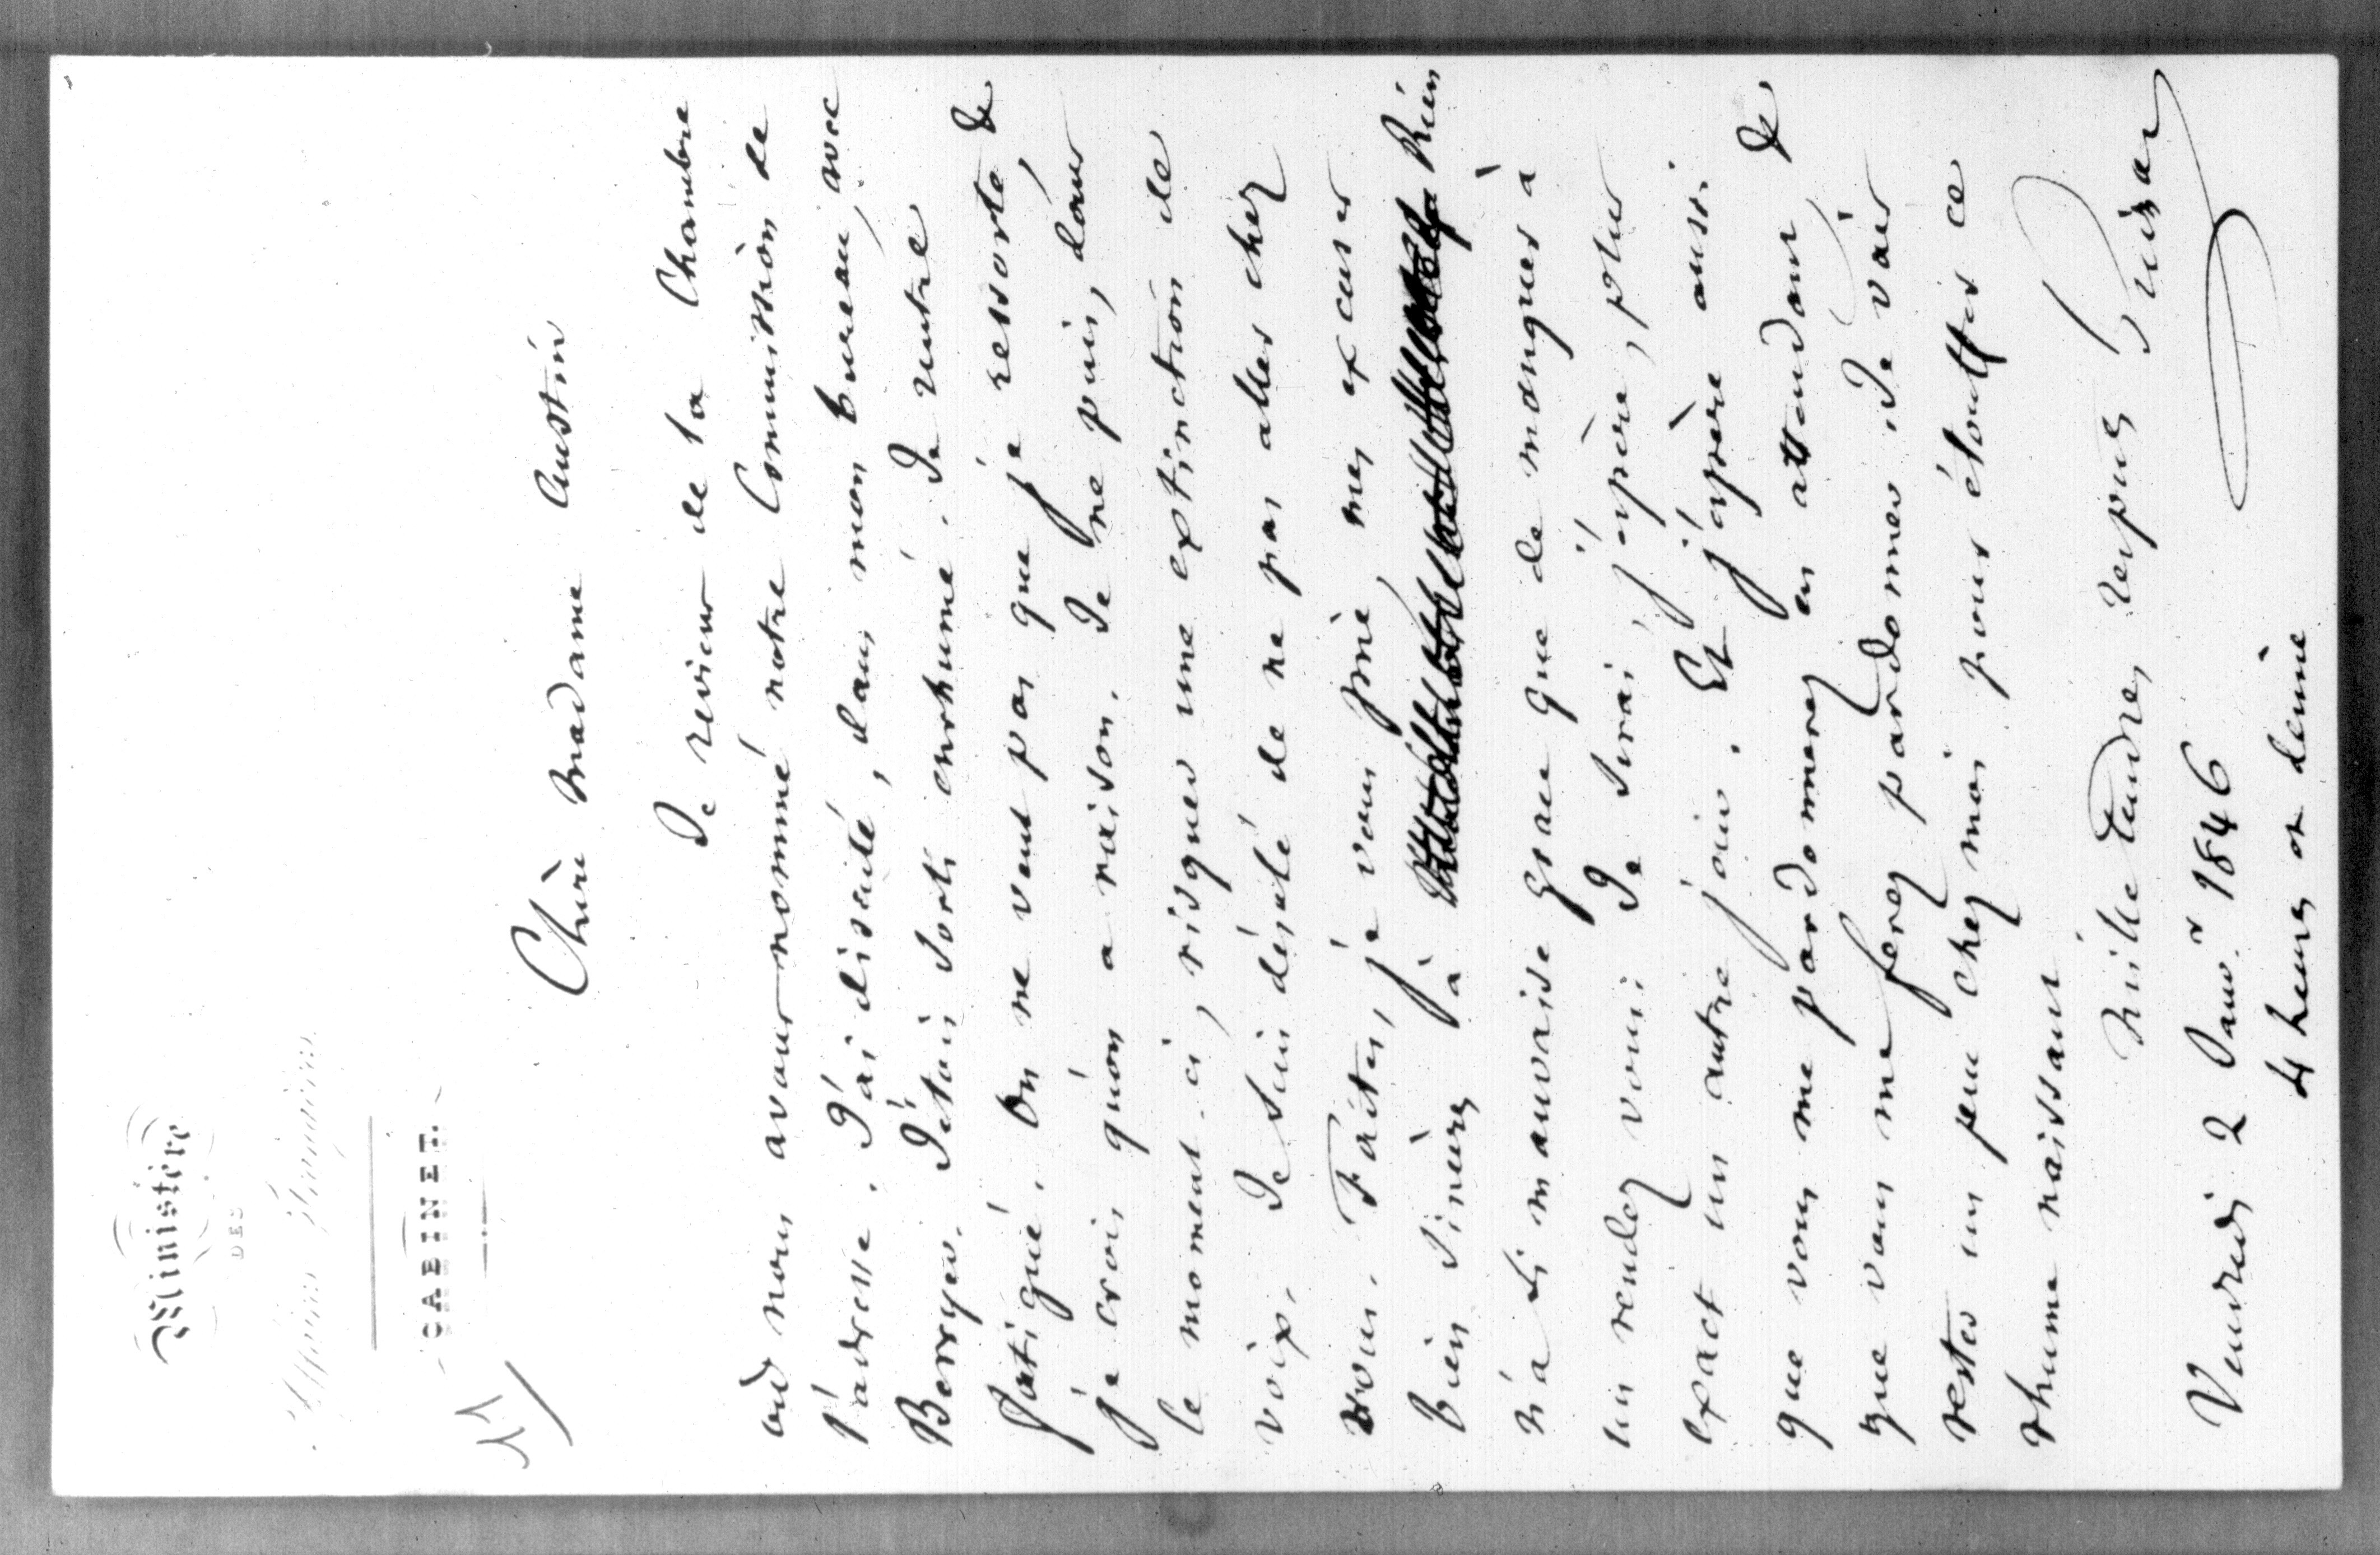 Ministère
DES
Affaires Etrangères
CABINET.
11
Chère Madame Austin
Je reviens de la Chambre
où nous avons nommé notre Commission de
l'adresse. J'ai discuté, dans mon bureau, avec
Berryer. J'étais sorti enrhumé. Je rentre
fatigué. On ne veut pas que je ressorte &
je crois qu'on a raison. Je ne puis, dans
le moment-ci, risquer une extinction de
voix. Je suis désolé de ne pas aller chez
vous. Faites, je vous prie, mes excuses
bien sincères à Rien
n'a si mauvaise grace que de manquer à
un rendez vous. Je serai, j'espère, plus
exact un autre jour. Et j'espère aussi
que vous me pardonnerez en attendant, &
que vous me ferez pardonner. Je vais
rester un peu chez moi pour étouffer ce
rhume naissant.
Mille tendres respects
Guizot
Vendredi 2 Janv.r 1846
4 heures et demie